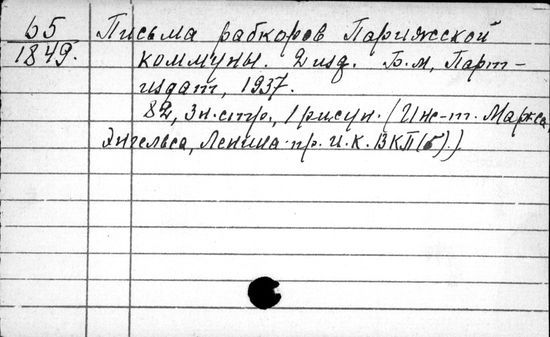 65
1849.
Письма рабкоров Парижской
коммуны. 2 изд. Б.м, Парт-
издат, 1937.
82, 3н.стр., 1 рисун. (Ин-т. Маркса,
Энгельса, Ленина при Ц.К. ВКП(б).)